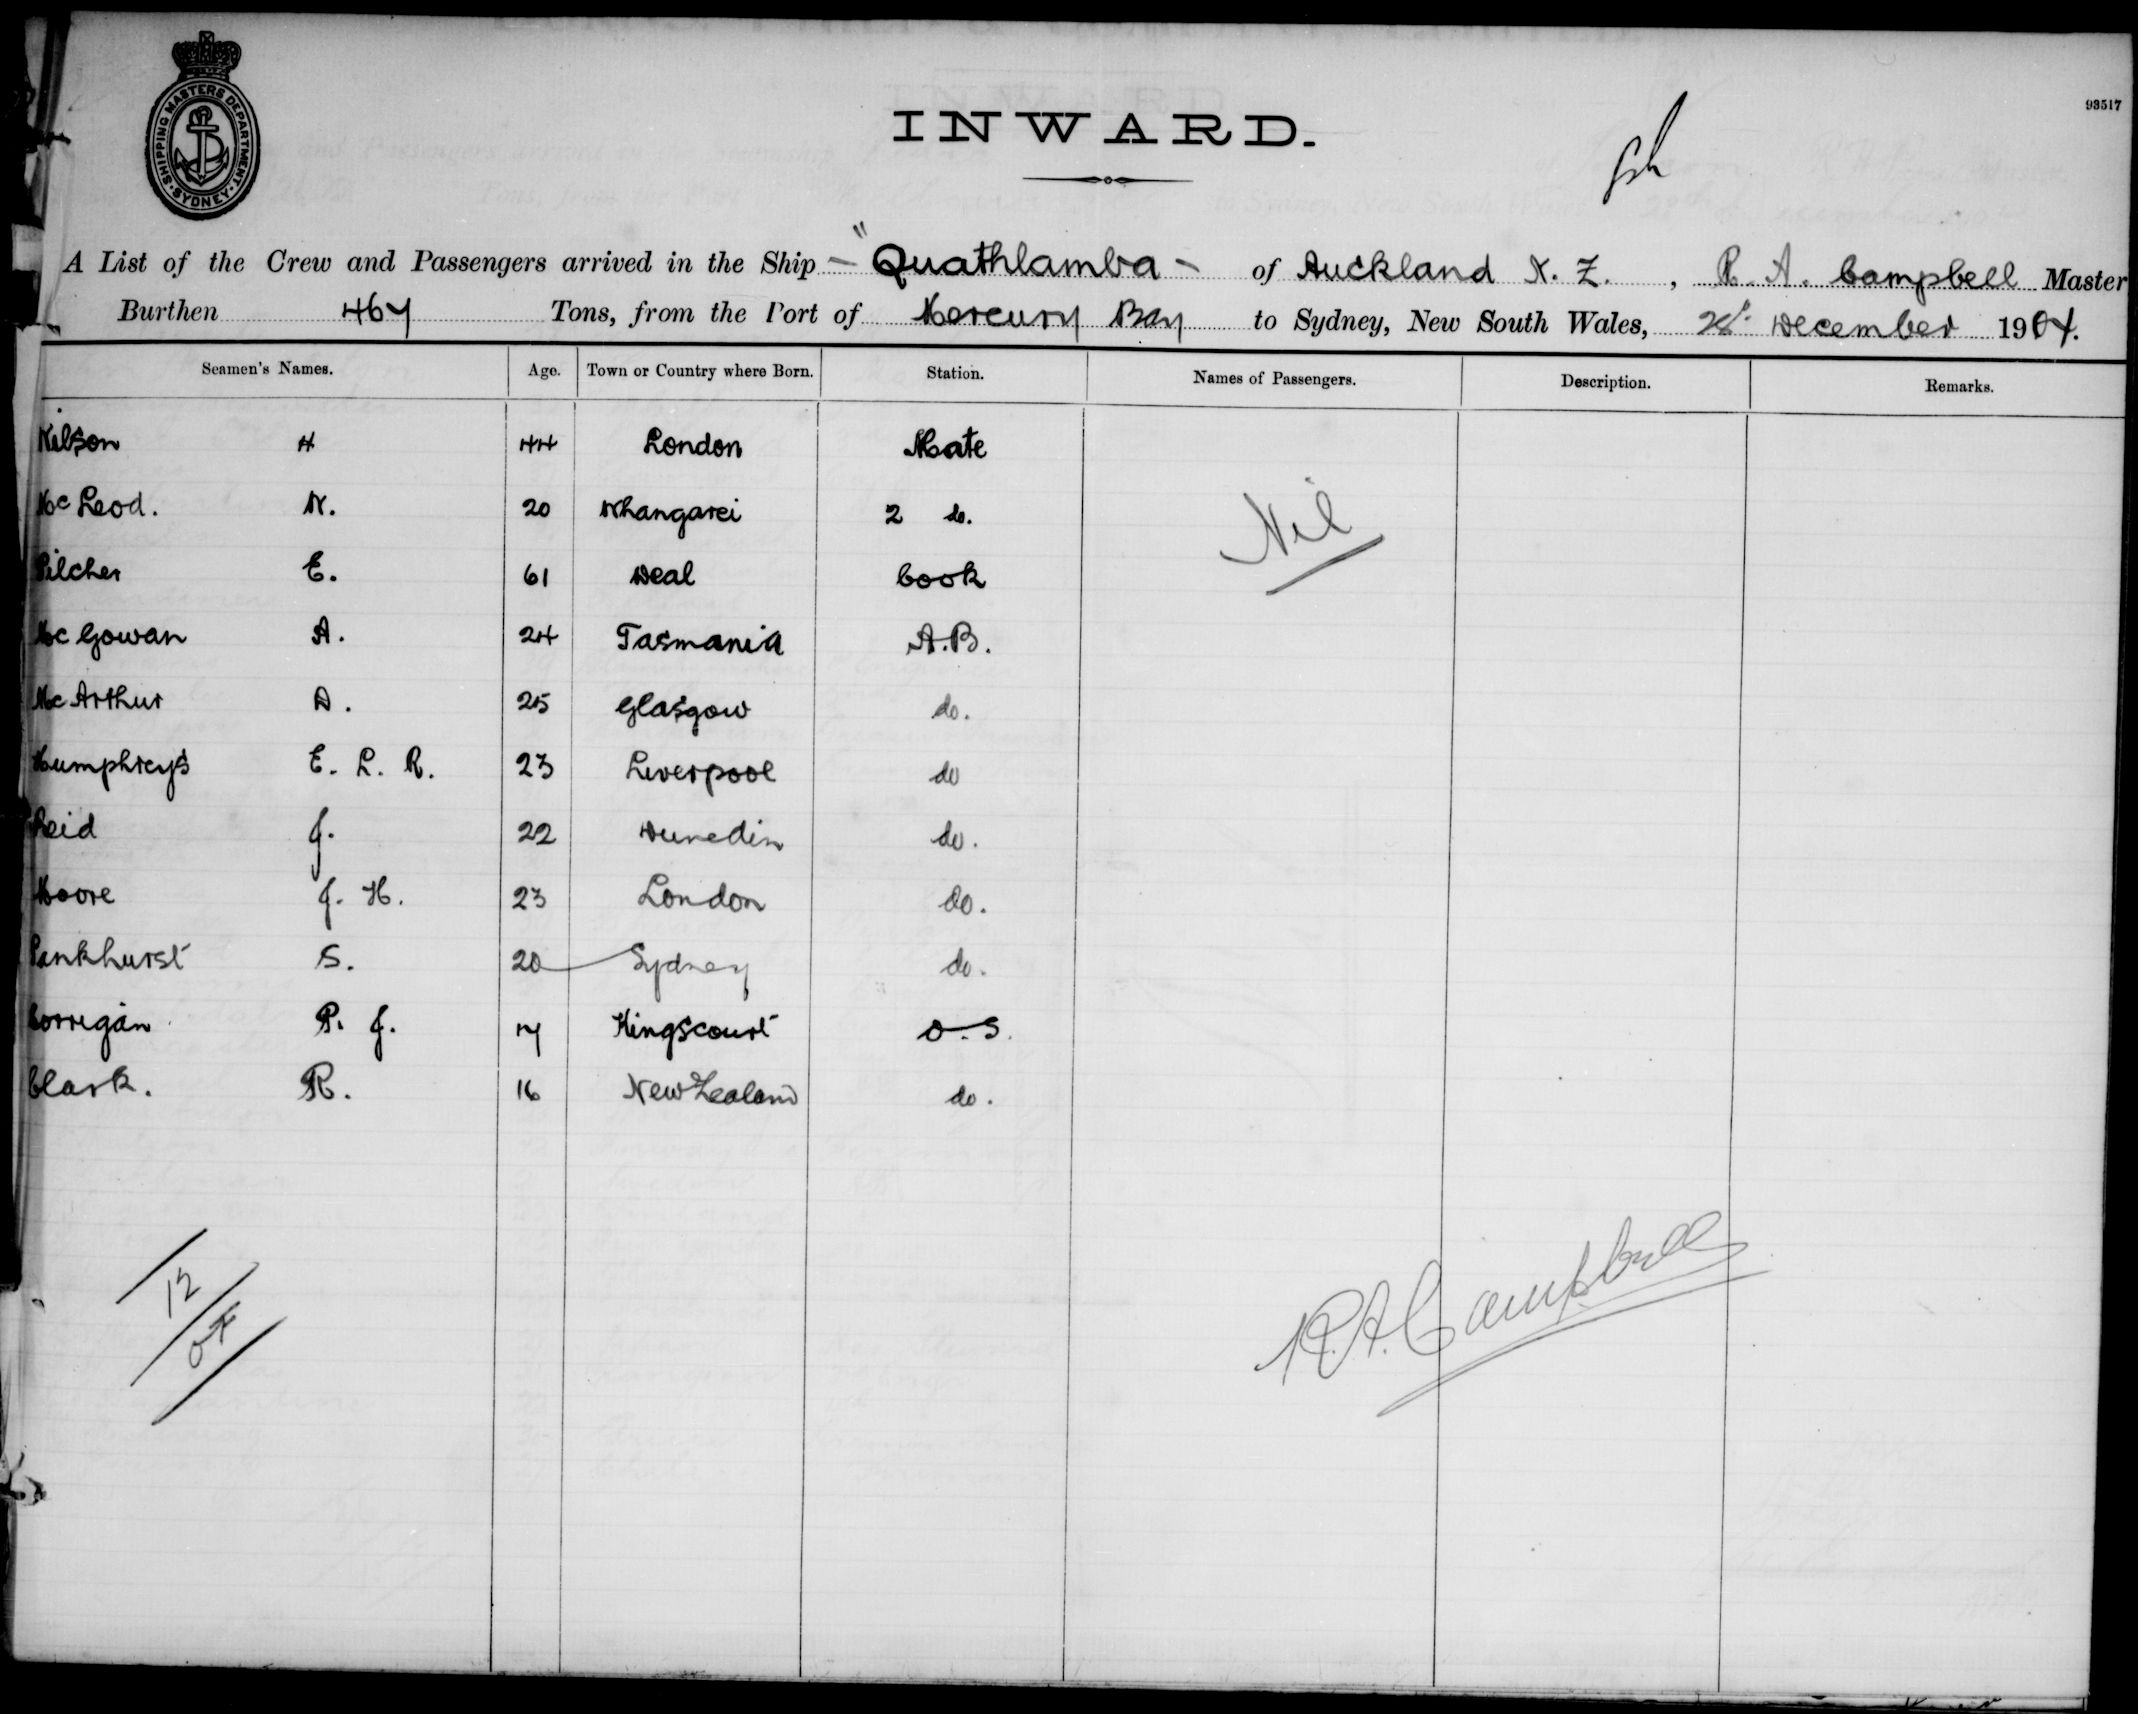 SHIPPING MASTERS DEPARTMENT · SYDNEY ·
93517
INWARD.
A List of the Crew and Passengers arrived in the Ship - "Quathlamba - of Auckland N. Z. , R. A. Campbell Master
Burthen 467 Tons, from the Port of Mercury Bay to Sydney, New South Wales, 28th December 1904.
Seamen's Names. Age. Town or Country where Born. Station. Names of Passengers. Description. Remarks.
Nilson H 44 London Mate
McLeod. N. 20 Whangarei 2 do. Nil
Pilcher E. 61 Deal Cook
McGowan A. 24 Tasmania A.B.
McArthur D. 25 Glasgow do.
Humphreys E. L. R. 23 Liverpool do
Reid J. 22 Dunedin do.
Moore J. H. 23 London do.
Pankhurst S. 20 Sydney do.
Corrigan P. J. 17 Kingscourt O.S.
Clark. R. 16 New Zealand do.
12
04
R.A. Campbell